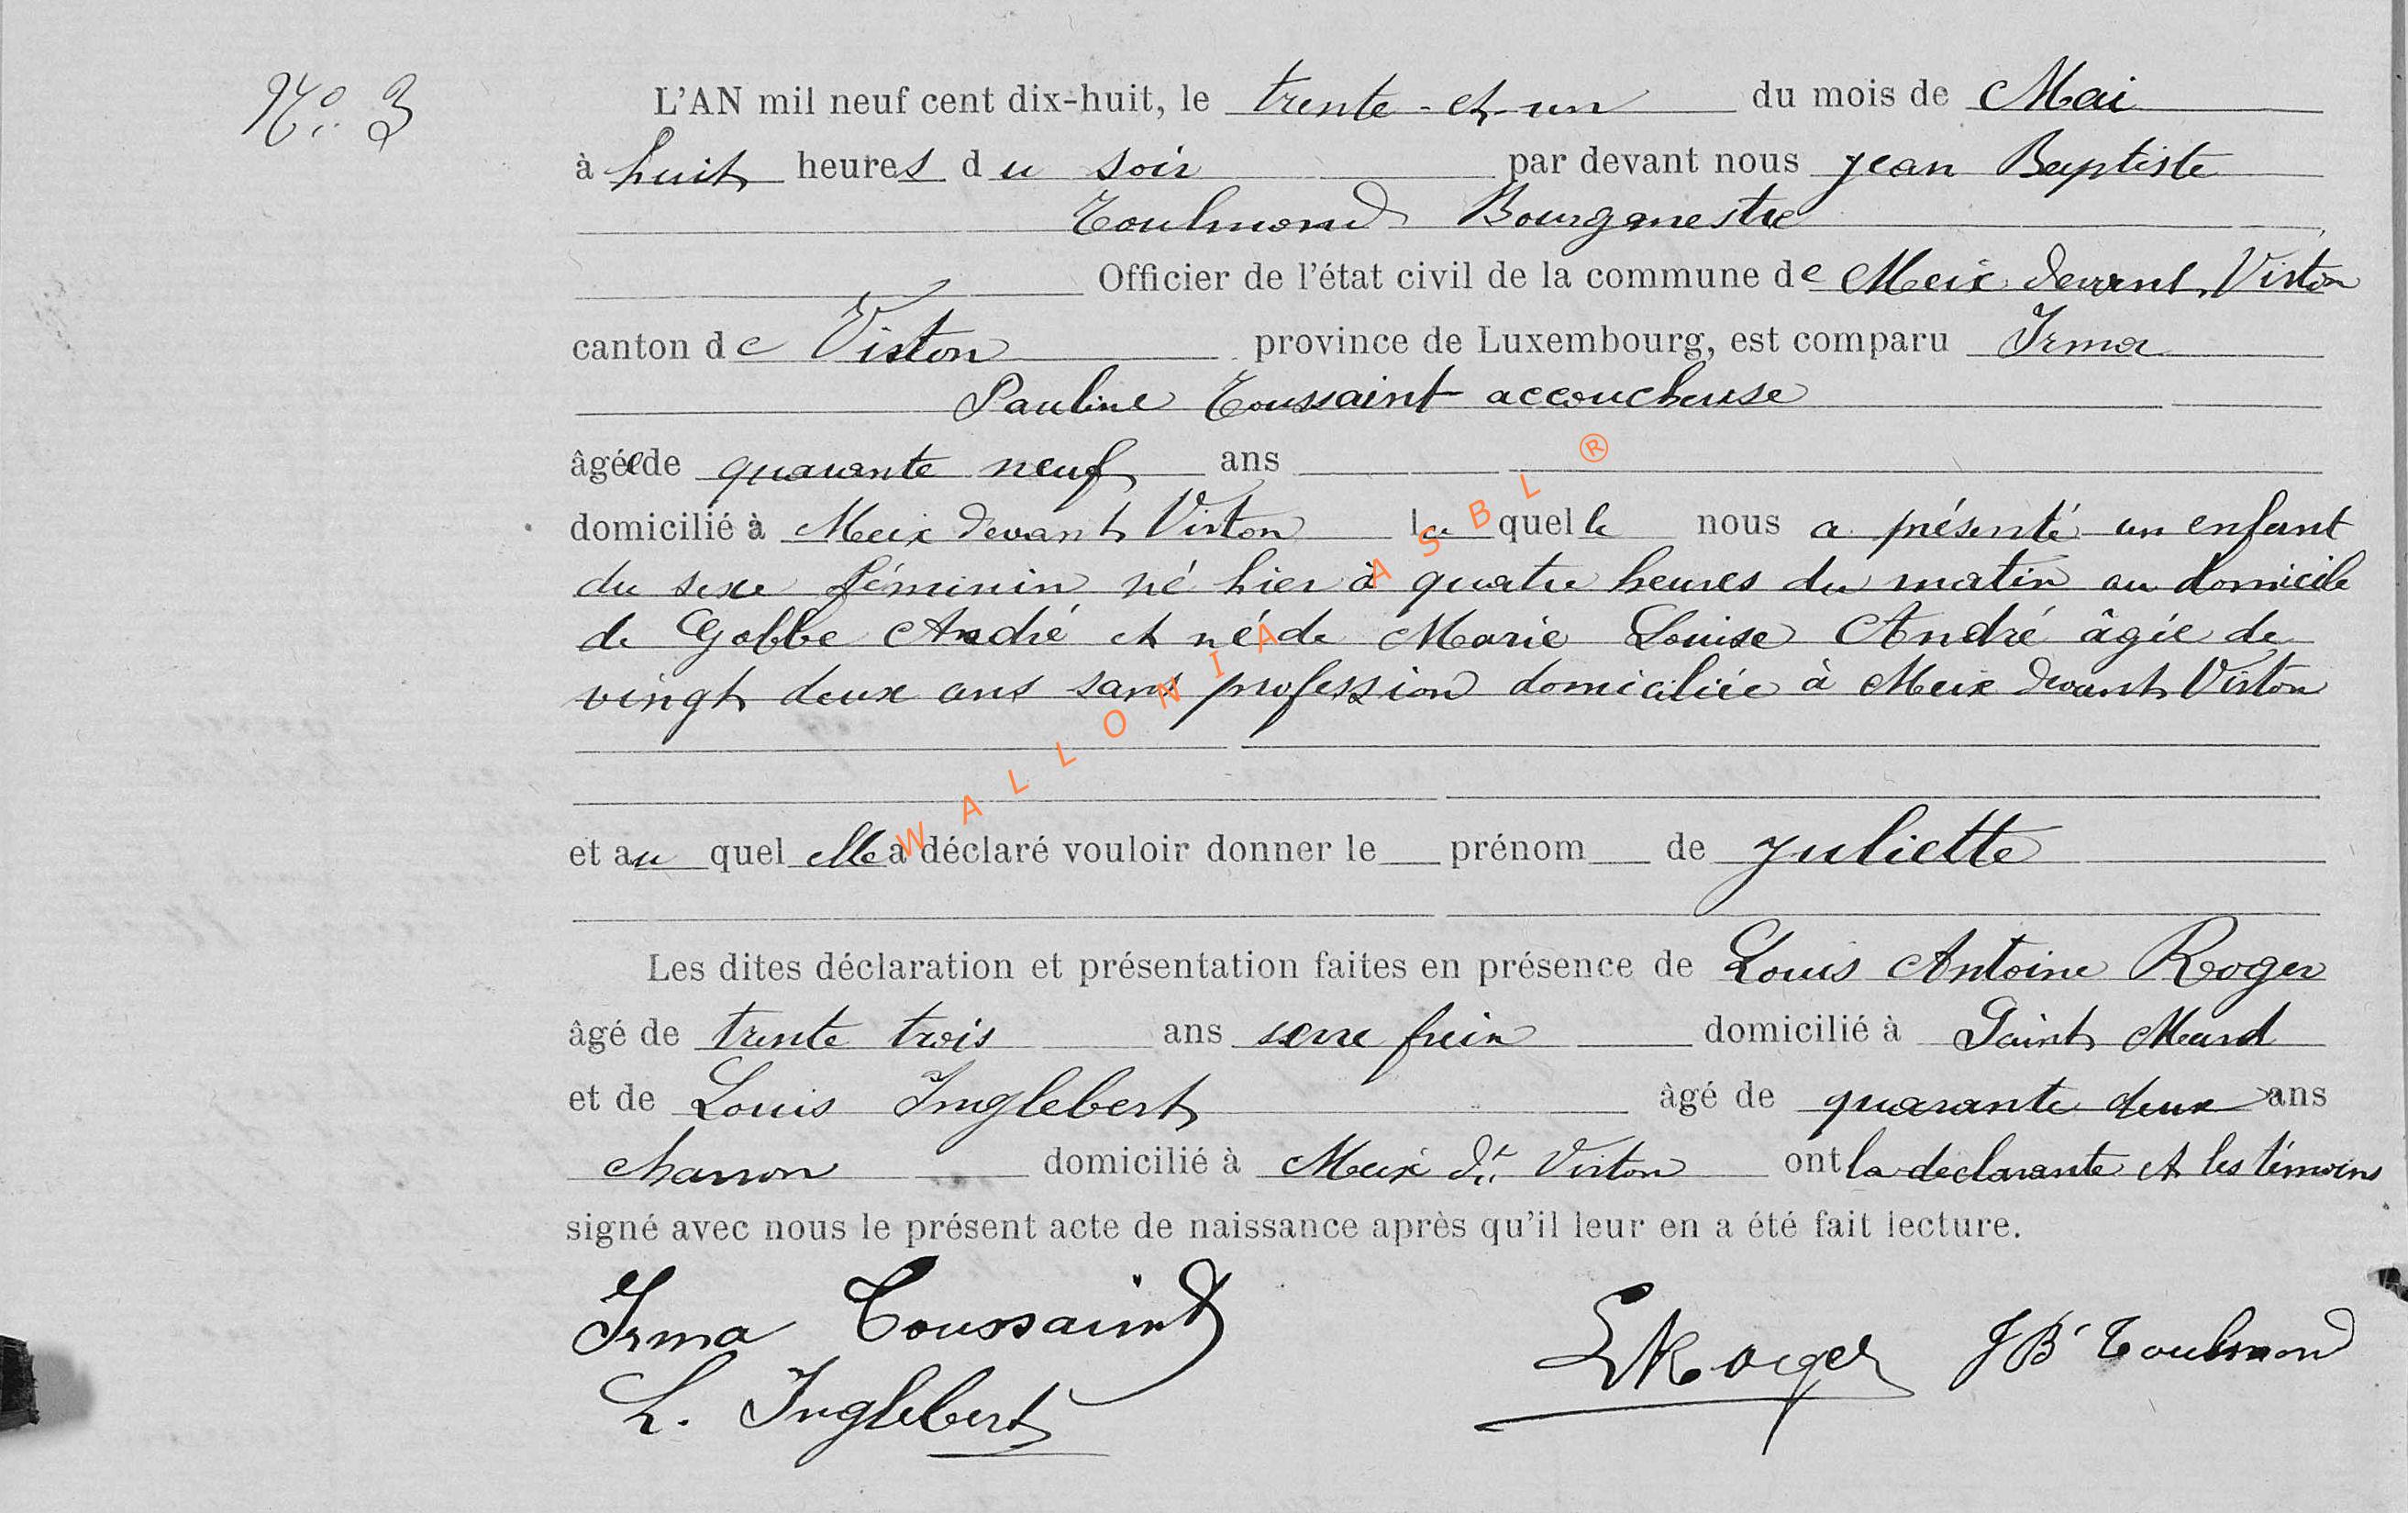 No. 3
L'AN mil neuf cent dix-huit, le trente-et-un du mois de Mai
à huit heures du soir par devant nous Jean Baptiste
Toulmond Bourgmestre
Officier de l'état civil de la commune de Meix devant Virton
canton de Virton province de Luxembourg, est comparu Irma
Pauline Toussaint accoucheuse
âgée de quarante neuf ans
domicilié à Meix devant Virton laquelle nous a présenté un enfant
du sexe féminin né hier à quatre heures du matin au domicile
de Gobbe André et né de Marie Louise André âgée de
vingt deux ans sans profession domiciliée à Meix devant Virton
et auquel elle a déclaré vouloir donner le prénom de Juliette
Les dites déclaration et présentation faites en présence de Louis Antoine Roger
âgé de trente trois ans serre frein domicilié à Saint Mard
et de Louis Inglebert âgé de quarante deux ans
charron domicilié à Meix dt. Virton ont la déclarante et les témoins
signé avec nous le présent acte de naissance après qu'il leur en a été fait lecture.
Irma Toussaint
L. Inglebert
L Roger
J Bte Toulmond
WALLONIA ASBL ®